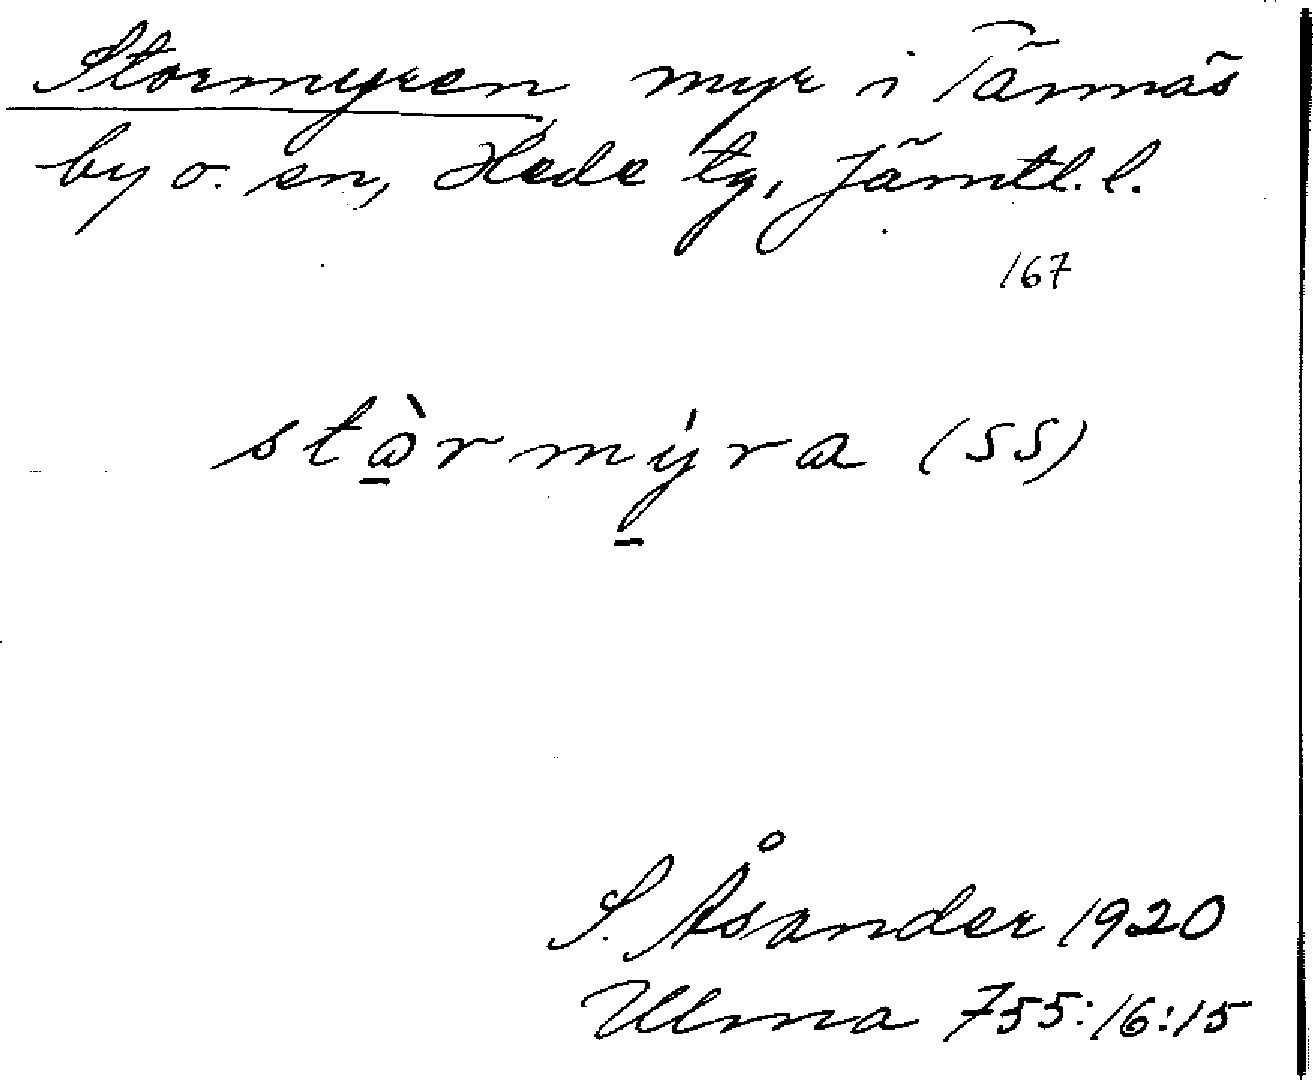 Stormyren, myr i Tännäs
by o. sn, Hede tg, Jämtl. l.
167
stọ̀rmýra (SS)
S. Åsander 1920
Ulma 755:16:15